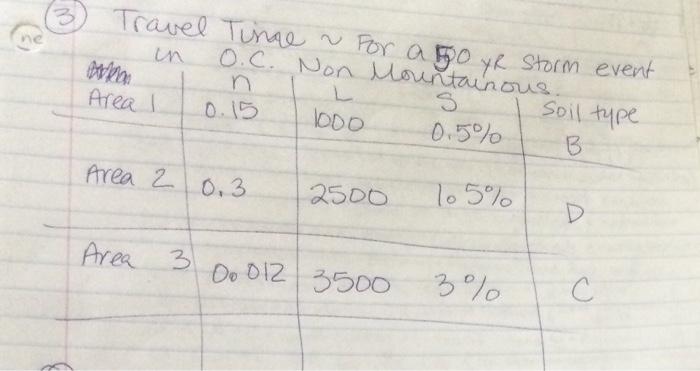 ③ Travel Time ~ For a 50 yR Storm event
ne
in O.C. Non Mountainous.
n L S Soil type
Area 1 0.15 1000 0.5% B
Area 2 0.3 2500 1.5% D
Area 3 0.012 3500 3% C